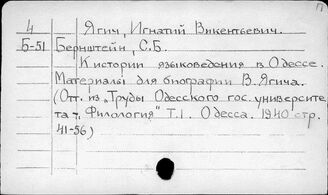 4 Ягич, Игнатий Викентьевич.
Б-51 Бернштейн, С.Б.
К истории языковедения в Одессе.
Материалы для биографии В.Ягича.
(Отт. из „Труды Одесского гос. университе
та т. Филология" Т.1. Одесса. 1940 стр.
41-56)